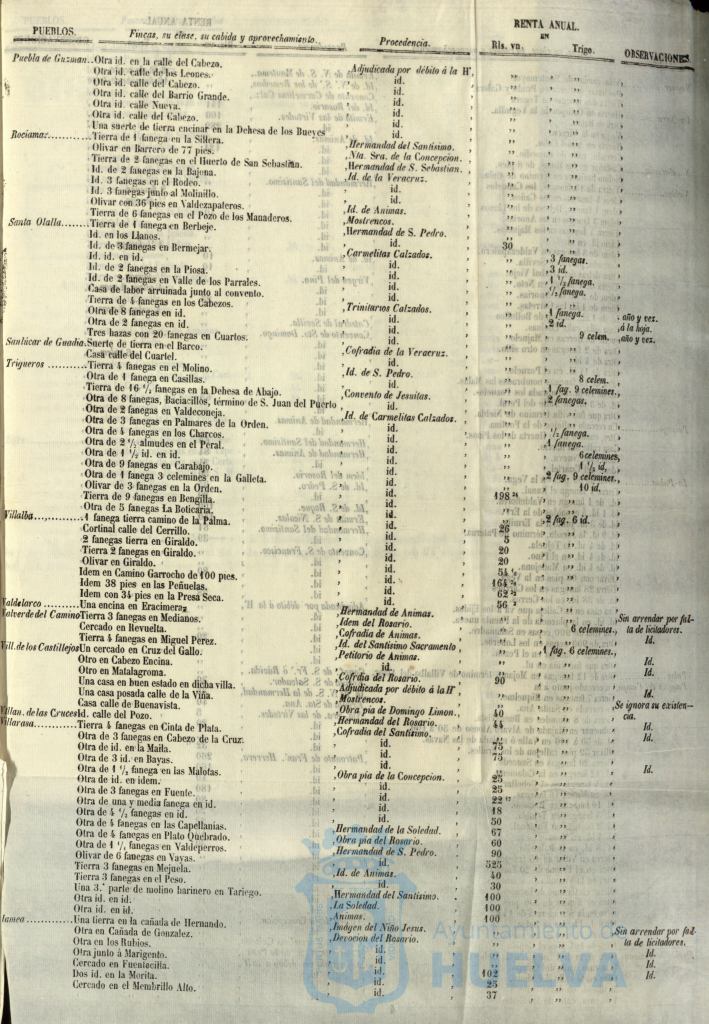 RENTA ANUAL.
PUEBLOS. Fincas, su clase, su cabida y aprovechamiento. Procedencia. EN OBSERVACIONES.
Rls. vn. Trigo.
Puebla de Guzman..Otra id. en la calle del Cabezo. Adjudicada por débito á la Hª.
Otra id. calle de los Leones. id.
Otra id. calle del Cabezo. id.
Otra id. calle del Barrio Grande. id.
Otra id. calle Nueva. id.
Otra id. calle del Cabezo. id.
Una suerte de tierra encinar en la Dehesa de los Bueyes id.
Rociamar..........Tierra de 1 fanega en la Sillera. Hermandad del Santísimo.
Olivar en Barrero de 77 pies. Nta. Sra. de la Concepcion.
Tierra de 2 fanegas en el Huerto de San Sebastian. Hermandad de S. Sebastian.
Id. de 2 fanegas en la Bajona. Id. de la Veracruz.
Id. 3 fanegas en el Rodeo. id.
Id. 3 fanegas junto al Molinillo. id.
Olivar con 36 pies en Valdezapateros. Id. de Animas.
Tierra de 6 fanegas en el Pozo de los Manaderos. Mostrencos.
Santa Olalla......Tierra de 1 fanega en Berbeje. Hermandad de S. Pedro.
Id. en los Llanos. id. 30
Id. de 3 fanegas en Bermejar. Carmelitas Calzados.
Id. id. en id. id. 3 fanegas.
Id. de 2 fanegas en la Piosa. id. 3 id.
Id. de 2 fanegas en Valle de los Parrales. id. 1 1/2 fanega.
Casa de labor arruinada junto al convento. id. 1/2 fanega.
Tierra de 4 fanegas en los Cabezos. Trinitarios Calzados.
Otra de 8 fanegas en id. id. 1 fanega. año y vez.
Otra de 2 fanegas en id. id. 2 id. á la hoja.
Tres hazas con 20 fanegas en Cuartos. id. 9 celem. año y vez.
Sanlúcar de Guadia.Suerte de tierra en el Barco. Cofradia de la Veracruz.
Casa calle del Cuartel. id.
Trigueros ..........Tierra 4 fanegas en el Molino. Id. de S. Pedro.
Otra de 1 fanega en Casillas. id. 8 celem.
Tierra de 16 1/2 fanegas en la Dehesa de Abajo. Convento de Jesuitas. 1 fag. 9 celemines.
Otra de 8 fanegas, Baciacillos, término de S. Juan del Puerto id. 2 fanegas.
Otra de 2 fanegas en Valdeconeja. Id. de Carmelitas Calzados.
Otra de 3 fanegas en Palmares de la Orden. id.
Otra de 4 fanegas en los Charcos. id. 1/2 fanega.
Otra de 2 1/2 almudes en el Peral. id. 1 fanega.
Otra de 1 1/2 id. en id. id. 6 celemines,
Otra de 9 fanegas en Carabajo. id. 1 1/2 id,
Otra de 1 fanega 3 celemines en la Galleta. id. 2 fag. 9 celemines.
Olivar de 3 fanegas en la Orden. id. 10 id.
Tierra de 9 fanegas en Bengilla. id. 198
Otra de 5 fanegas La Boticaria. id.
Villalba..........1 fanega tierra camino de la Palma. id. 2 fag. 6 id.
Cortinal calle del Cerrillo. id. 26
2 fanegas tierra en Giraldo. id. 5
Tierra 2 fanegas en Giraldo. id. 20
Olivar en Giraldo. id. 20
Idem en Camino Garrocho de 100 pies. id. 54
Idem 38 pies en las Peñuelas. id. 164
Idem con 34 pies en la Presa Seca. id. 62
Valdelarco ........Una encina en Eracimera. id. 56
Valverde del Camino Tierra 3 fanegas en Medianos. Hermandad de Animas. Sin arrendar por fal-
Cercado en Revuelta. Idem del Rosario. 6 celemines. ta de licitadores.
Tierra 4 fanegas en Miguel Perez. Cofradia de Animas. Id.
Vill. de los Castillejos Un cercado en Cruz del Gallo. Id. del Santísimo Sacramento 1 fag. 6 celemines.
Otro en Cabezo Encina. Petitorio de Animas. Id.
Otro en Matalagroma. id.
Una casa en buen estado en dicha villa. Cofrdia del Rosario. 90 Id.
Una casa posada calle de la Viña. Adjudicada por débito á la Hª.
Casa calle de Buenavista. Mostrencos. Se ignora su existen-
Villan. de las Cruces Id. calle del Pozo. Obra pia de Domingo Limon. 40 cia.
Villarasa..........Tierra 4 fanegas en Cinta de Plata. Hermandad del Rosario. 44 Id.
Otra de 3 fanegas en Cabezo de la Cruz. Cofradia del Santísimo. Id.
Otra de id. en la Maila. id. 75
Otra de 3 id. en Bayas. id. 75
Otra de 1 1/2 fanega en las Malotas. id. Id.
Otra de id. en idem. Obra pia de la Concepcion. 25
Otra de 3 fanegas en Fuente. id. 25
Otra de una y media fanega en id. id. 22
Otra de 4 1/2 fanegas en id. id. 18
Otra de 4 fanegas en las Capellanias. id. 50
Otra de 4 fanegas en Plato Quebrado. Hermandad de la Soledad. 67
Otra de 1 1/2 fanegas en Valdeperros. Obra pia del Rosario. 60
Olivar de 6 fanegas en Vayas. Hermandad de S. Pedro. 90
Tierra 3 fanegas en Mejuela. id. 525
Tierra 3 fanegas en el Peso. Id. de Animas. 40
Una 3.ª parte de molino harinero en Tariego. id. 30
Otra id. en id. Hermandad del Santísimo. 100
Otra id. en id. La Soledad. 100
lamea ..........Una tierra en la cañada de Hernando. Animas. 100
Otra en Cañada de Gonzalez. Imágen del Niño Jesus. Sin arrendar por fal-
Otra en los Rubios. Devocion del Rosario. ta de licitadores.
Otra junto á Marigento. id. Id.
Cercado en Fuentecilla. id. Id.
Dos id. en la Morita. id. 102 Id.
Cercado en el Membrillo Alto. id. 25
id. 37
Ayuntamiento de
HUELVA